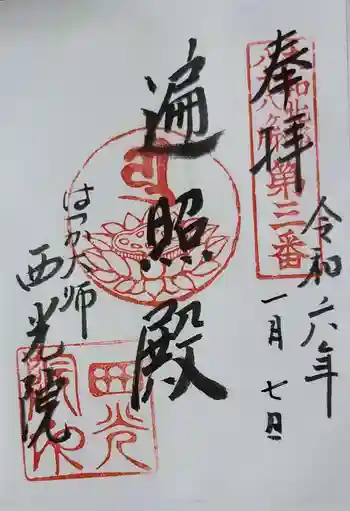 奉拝
第三番
令和六年
一月七日
遍照殿
はつか大師
西光院